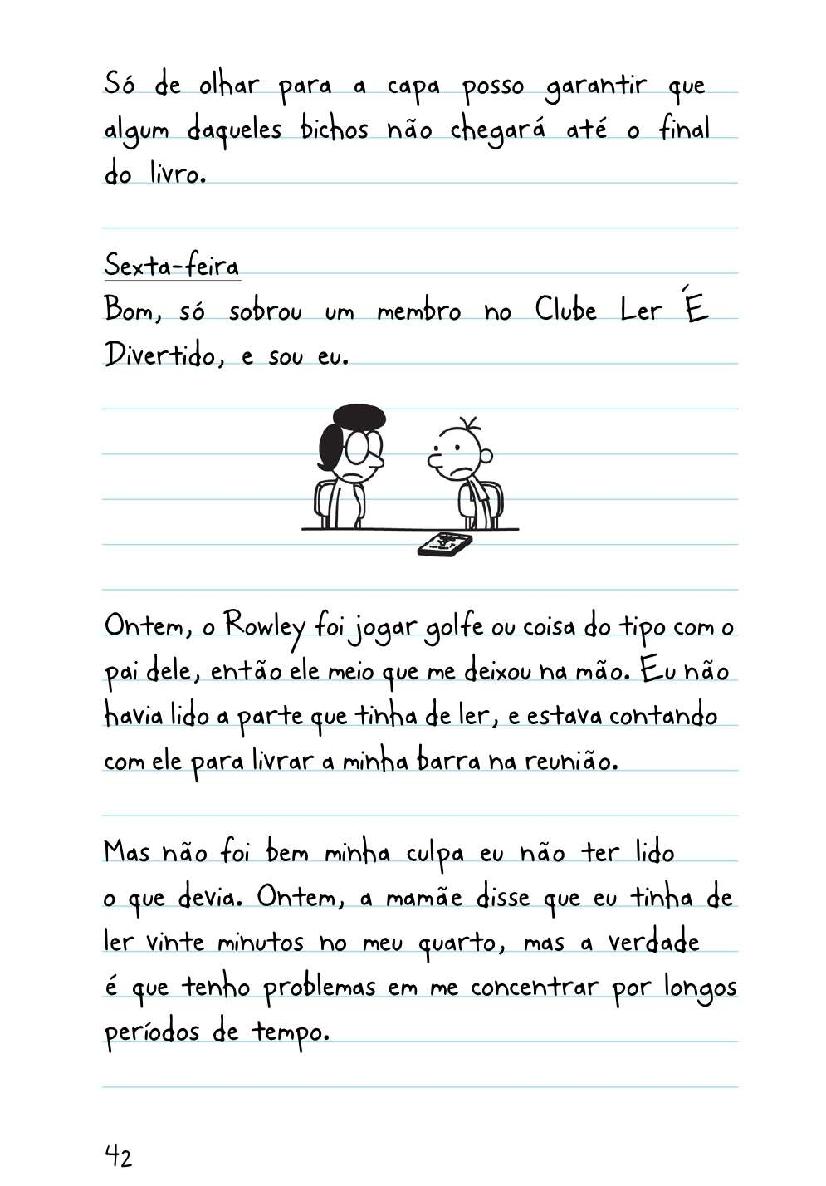 Só de olhar para a capa posso garantir que
algum daqueles bichos não chegará até o final
do livro.
Sexta-feira
Bom, só sobrou um membro no Clube Ler É
Divertido, e sou eu.
Ontem, o Rowley foi jogar golfe ou coisa do tipo com o
pai dele, então ele meio que me deixou na mão. Eu não
havia lido a parte que tinha de ler, e estava contando
com ele para livrar a minha barra na reunião.
Mas não foi bem minha culpa eu não ter lido
o que devia. Ontem, a mamãe disse que eu tinha de
ler vinte minutos no meu quarto, mas a verdade
é que tenho problemas em me concentrar por longos
períodos de tempo.
42